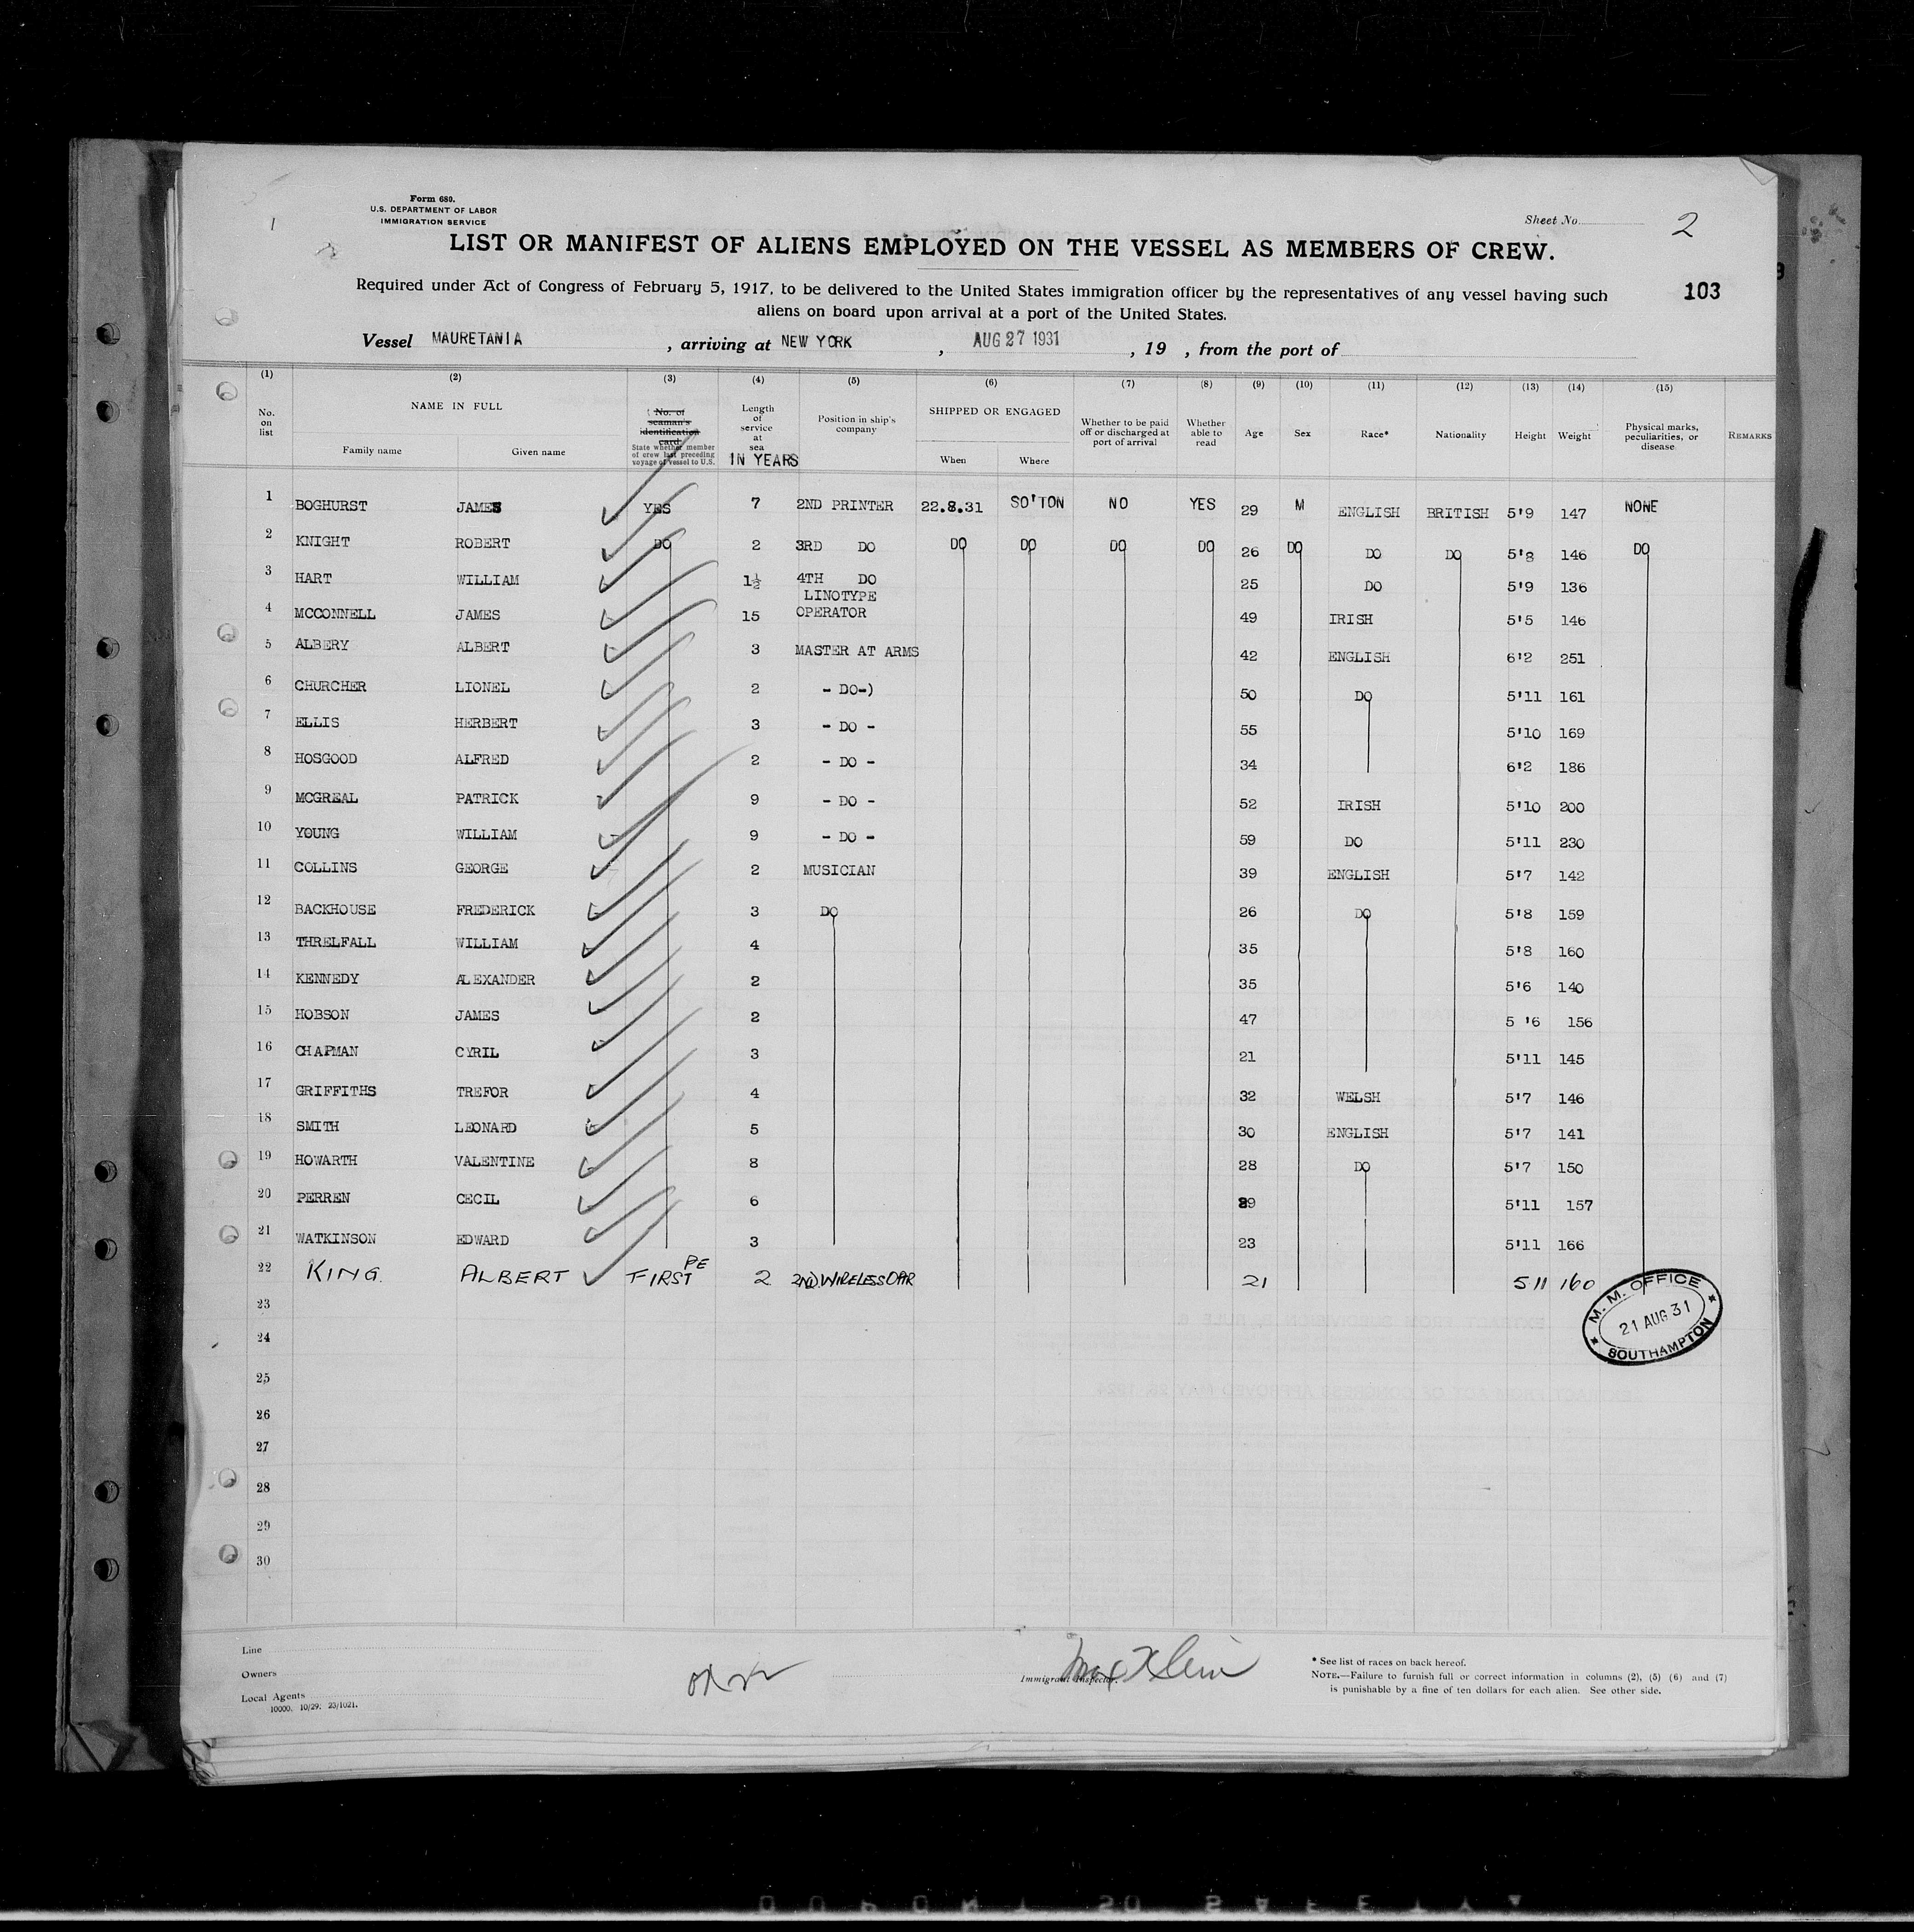 Form 680.
U.S. DEPARTMENT OF LABOR
IMMIGRATION SERVICE
1
Sheet No. 2
LIST OR MANIFEST OF ALIENS EMPLOYED ON THE VESSEL AS MEMBERS OF CREW.
Required under Act of Congress of February 5, 1917, to be delivered to the United States immigration officer by the representatives of any vessel having such
aliens on board upon arrival at a port of the United States.
103
Vessel MAURETANIA, arriving at NEW YORK, AUG 27 1931, 19 , from the port of
(1) (2) (3) (4) (5) (6) (7) (8) (9) (10) (11) (12) (13) (14) (15)
No. on list
NAME IN FULL
Family name Given name
No. of seaman's identification card
State whether member of crew last preceding voyage of vessel to U.S.
Length of service at sea IN YEARS
Position in ship's company
SHIPPED OR ENGAGED
When Where
Whether to be paid off or discharged at port of arrival
Whether able to read
Age Sex Race* Nationality Height Weight
Physical marks, peculiarities, or disease
REMARKS
1 BOGHURST JAMES YES 7 2ND PRINTER 22.8.31 SO'TON NO YES 29 M ENGLISH BRITISH 5'9 147 NONE
2 KNIGHT ROBERT DO 2 3RD DO DO DO DO DO 26 DO DO DO 5'8 146 DO
3 HART WILLIAM 1½ 4TH DO 25 DO 5'9 136
LINOTYPE
4 MCCONNELL JAMES 15 OPERATOR 49 IRISH 5'5 146
5 ALBERY ALBERT 3 MASTER AT ARMS 42 ENGLISH 6'2 251
6 CHURCHER LIONEL 2 - DO-) 50 DO 5'11 161
7 ELLIS HERBERT 3 - DO - 55 5'10 169
8 HOSGOOD ALFRED 2 - DO - 34 6'2 186
9 MCGREAL PATRICK 9 - DO - 52 IRISH 5'10 200
10 YOUNG WILLIAM 9 - DO - 59 DO 5'11 230
11 COLLINS GEORGE 2 MUSICIAN 39 ENGLISH 5'7 142
12 BACKHOUSE FREDERICK 3 DO 26 DO 5'8 159
13 THRELFALL WILLIAM 4 35 5'8 160
14 KENNEDY ALEXANDER 2 35 5'6 140
15 HOBSON JAMES 2 47 5 '6 156
16 CHAPMAN CYRIL 3 21 5'11 145
17 GRIFFITHS TREFOR 4 32 WELSH 5'7 146
18 SMITH LEONARD 5 30 ENGLISH 5'7 141
19 HOWARTH VALENTINE 8 28 DO 5'7 150
20 PERREN CECIL 6 29 5'11 157
21 WATKINSON EDWARD 3 23 5'11 166
22 KING. ALBERT FIRST PE 2 2ND WIRELESS OPR 21 5 11 160
23
24
25
26
27
28
29
30
M. M. OFFICE
21 AUG 31
SOUTHAMPTON
Line
Owners
Local Agents
10000. 10/29: 23/1021.
Max Klein
Immigrant Inspector.
* See list of races on back hereof.
NOTE.—Failure to furnish full or correct information in columns (2), (5) (6) and (7)
is punishable by a fine of ten dollars for each alien. See other side.